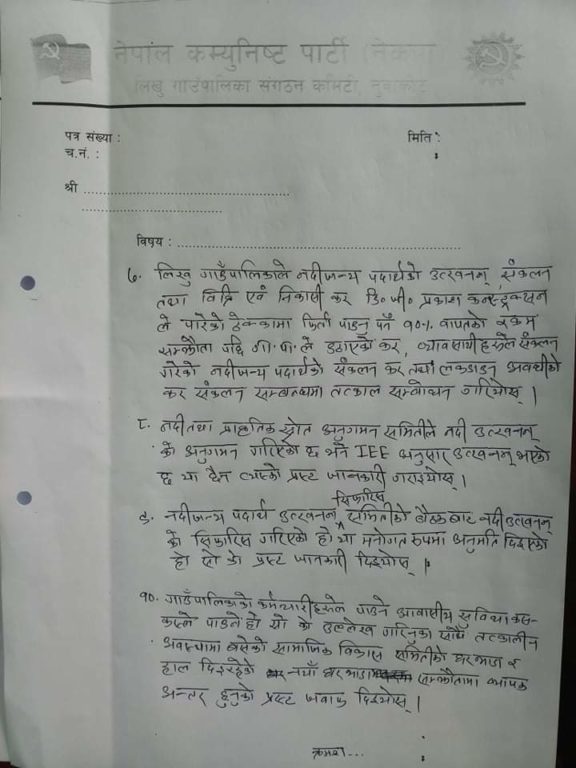 नेपाल कम्युनिष्ट पार्टी (नेकपा)
लिखु गाउँपालिका संगठन कमिटी, नुवाकोट
पत्र संख्या :
मिति :
च.नं. :
श्री
विषय :
७. लिखु गाउँपालिकाले नदीजन्य पदार्थको उत्खनन्, संकलन
तथा विक्रि एवं निकासी कर डि.पी. प्रकाश कन्स्ट्रक्सन
ले पारेको ठेक्कामा फिर्ता पाउनु पर्ने १०% वापतको रकम
सम्झौता पछि गा.पा.ले उठाएको कर, व्यवसायीहरूले संकलन
गरेको नदीजन्य पदार्थको संकलन कर तथा लकडाउन अवधीको
कर संकलन सम्बन्धमा तत्काल सम्बोधन गरियोस् ।
८. नदी तथा प्राकृतिक स्रोत अनुगमन समितीले नदी उत्खनन्
को अनुगमन गरिएको छ भने IEE अनुसार उत्खनन् भएको
छ या छैन त्यसको प्रष्ट जानकारी गराइयोस् ।
सिफारिस
९. नदीजन्य पदार्थ उत्खनन् समितीको बैठकबाट नदी उत्खनन्
को सिफारिस गरिएको हो या मनोगत रुपमा अनुमति दिइएको
हो सो को प्रष्ट जानकारी दिइयोस् ।
१०. गाउँपालिकाको कर्मचारीहरूले पाउने आवासीय सुविधा कस-
कस्ले पाउने हो सो को उल्लेख गरिनुका साथै तत्कालीन
अवस्थामा बसेको सामाजिक विकास समितीको घरभाडा र
हाल दिइरहेको नयाँ घरभाडा सम्झौतामा व्यापक
अन्तर हुनुको प्रष्ट जवाफ दिइयोस् ।
क्रमश...